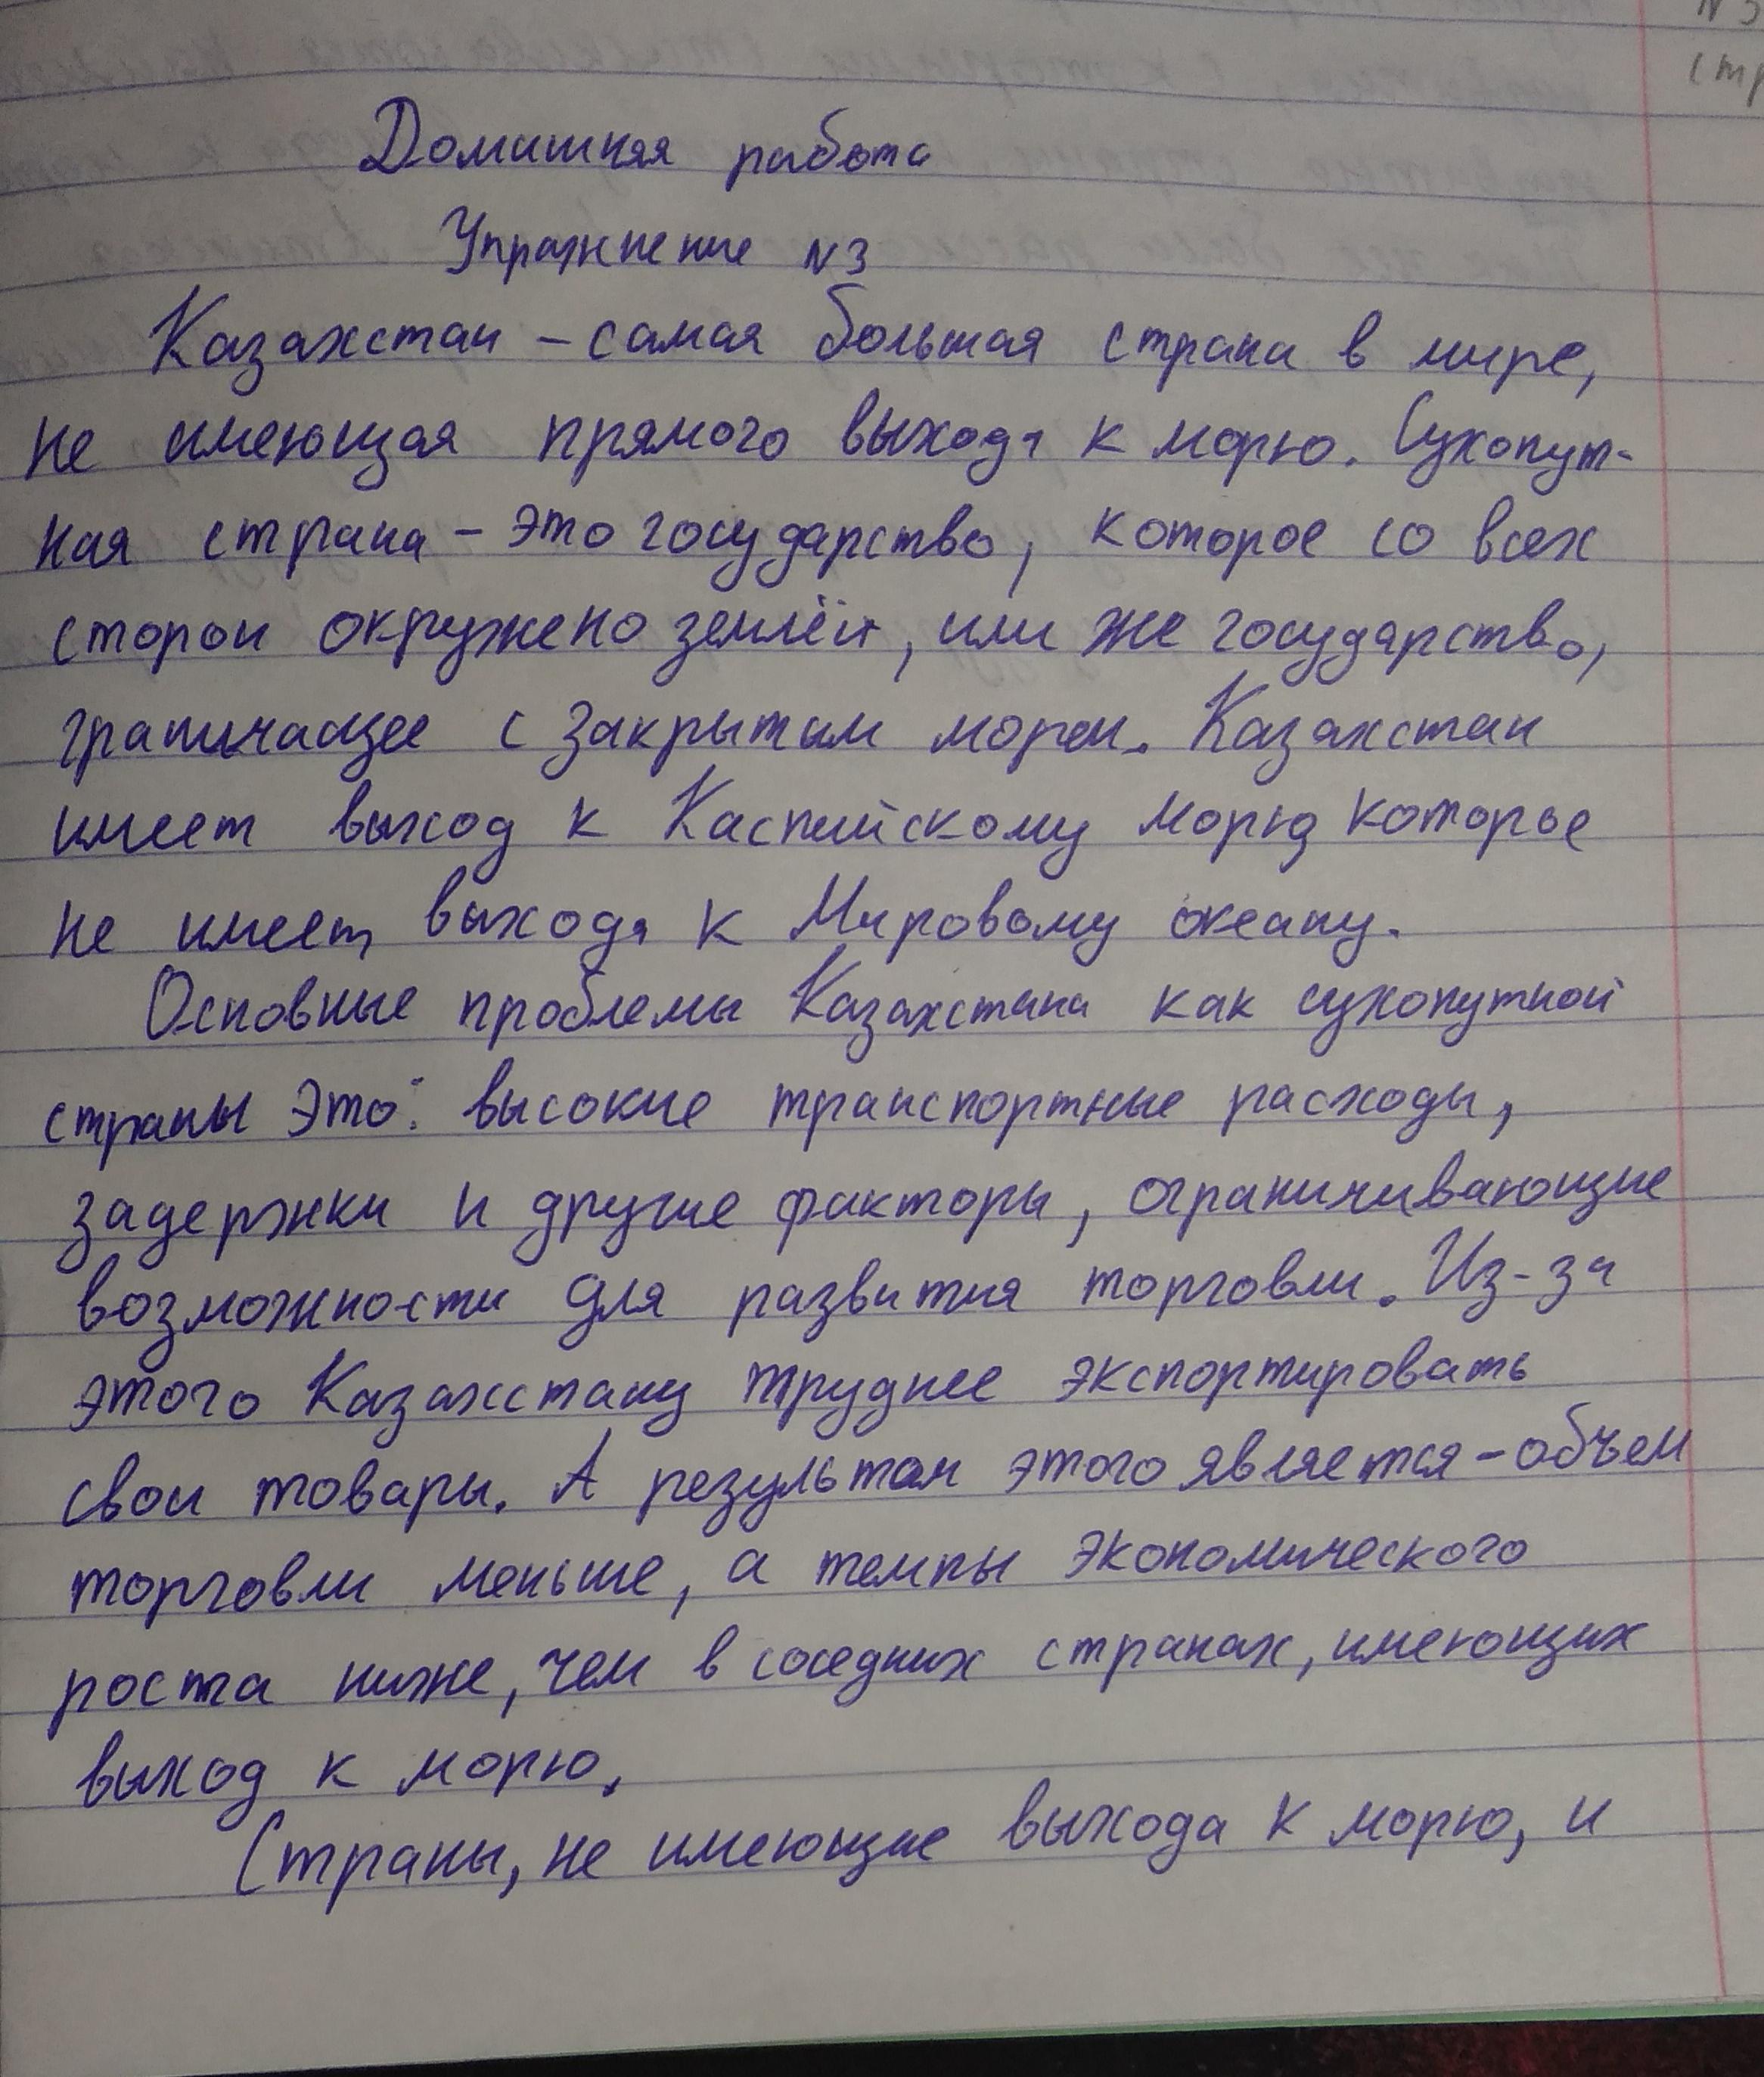 N3
стр
Домашняя работа
Упражнение N3
Казахстан – самая большая страна в мире,
не имеющая прямого выхода к морю. Сухопут-
ная страна – это государство, которое со всех
сторон окружено землёй, или же государство,
граничащее с закрытым морем. Казахстан
имеет выход к Каспийскому морю, которое
не имеет выхода к Мировому океану.
Основные проблемы Казахстана как сухопутной
страны это: высокие транспортные расходы,
задержки и другие факторы, ограничивающие
возможности для развития торговли. Из-за
этого Казахстану труднее экспортировать
свои товары. А результатом этого является – объем
торговли меньше, а темпы экономического
роста ниже, чем в соседних странах, имеющих
выход к морю.
Страны, не имеющие выхода к морю, и